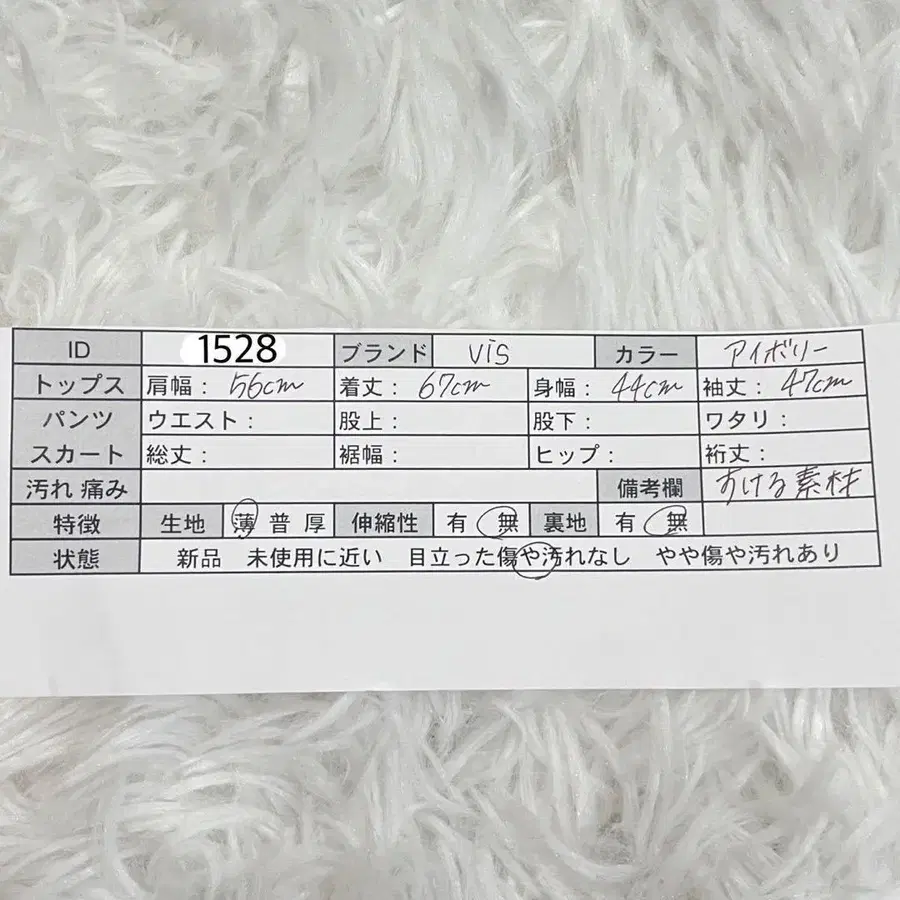 ID 1528 ブランド vis カラー アイボリー
トップス 肩幅： 56cm 着丈： 67cm 身幅： 44cm 袖丈： 47cm
パンツ ウエスト： 股上： 股下： ワタリ：
スカート 総丈： 裾幅： ヒップ： 裄丈：
汚れ 痛み 備考欄 すける素材
特徴 生地 薄 普 厚 伸縮性 有 無 裏地 有 無
状態 新品 未使用に近い 目立った傷や汚れなし やや傷や汚れあり